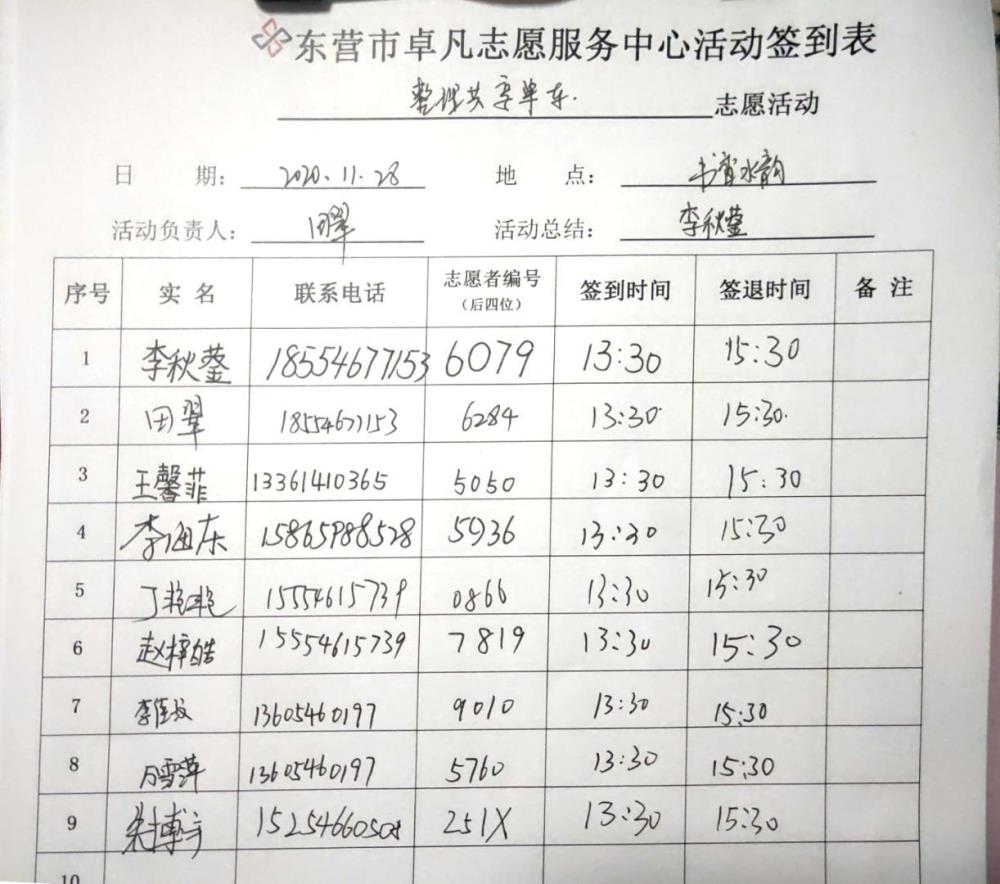 东营市卓凡志愿服务中心活动签到表
整理共享单车. 志愿活动
日 期: 2020.11.28 地 点: 书香水韵
活动负责人: 田翠 活动总结: 李秋蓥
序号 实 名 联系电话 志愿者编号 (后四位) 签到时间 签退时间 备 注
1 李秋蓥 18554677153 6079 13:30 15:30
2 田翠 18554677153 6284 13:30 15:30
3 王馨菲 13361410365 5050 13:30 15:30
4 李海东 15865988528 5936 13:30 15:30
5 丁艳艳 15554615739 0866 13:30 15:30
6 赵梓皓 15554615739 7819 13:30 15:30
7 13605460197 9010 13:30 15:30
8 13605460197 5760 13:30 15:30
9 15254660508 251X 13:30 15:30
10